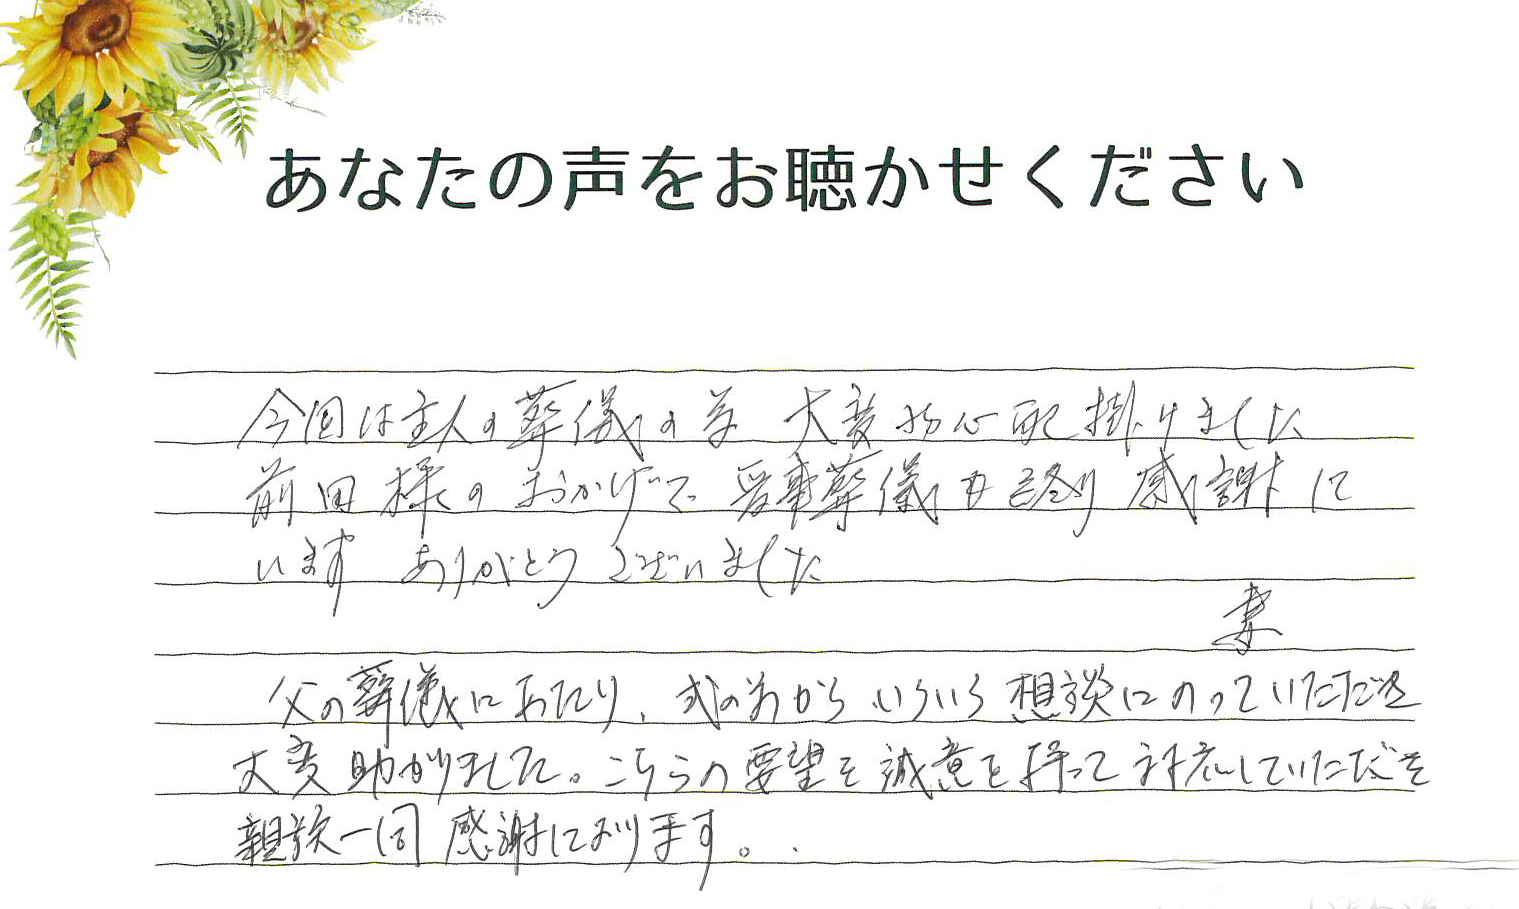 あなたの声をお聴かせください
今回は主人の葬儀の等 大変お心配掛けました
前田様のおかげで 無事葬儀も終り 感謝して
います ありがとうございました
妻
父の葬儀にあたり、式の前からいろいろ想談にのっていただき
大変助かりました。こちらの要望を誠意を持って対応していただき
親族一同 感謝しております。